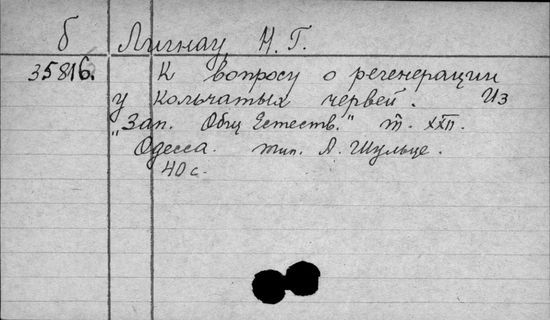 б Лигнау, Н. Г.
35816. К вопросу о регенерации
у кольчатых червей. Из
"Зап. Общ Естеств." т. XXII.
Одесса. тип. А. Шульце.
40 с.